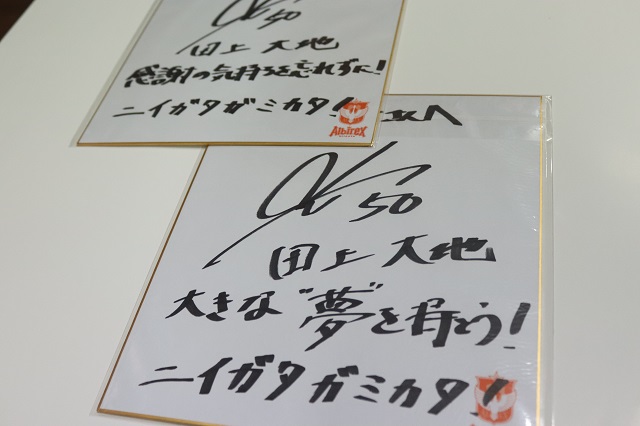 50
田上 大地
感謝の気持ちを忘れずに!
ニイガタガミカタ!
ALBIREX
50
田上 大地
大きな"夢"を持とう!
ニイガタガミカタ!